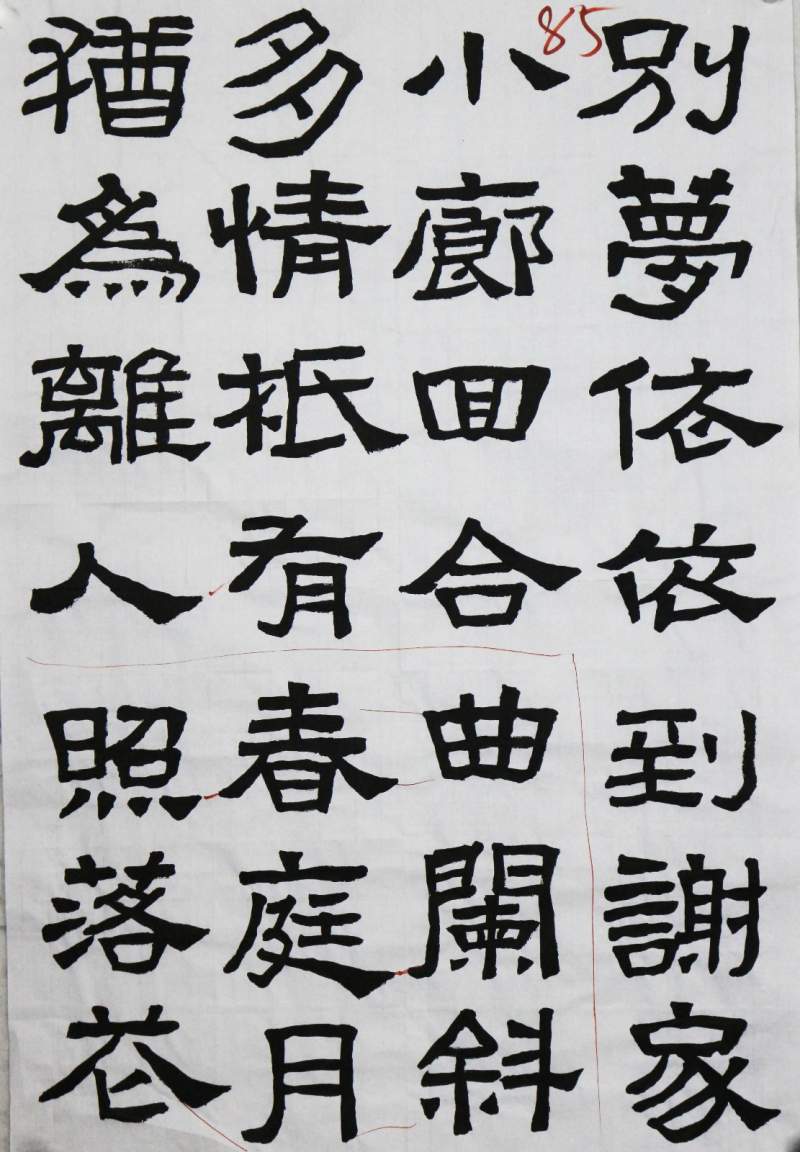 85
別夢依依到謝家
小廊回合曲闌斜
多情祇有春庭月
猶為離人照落花